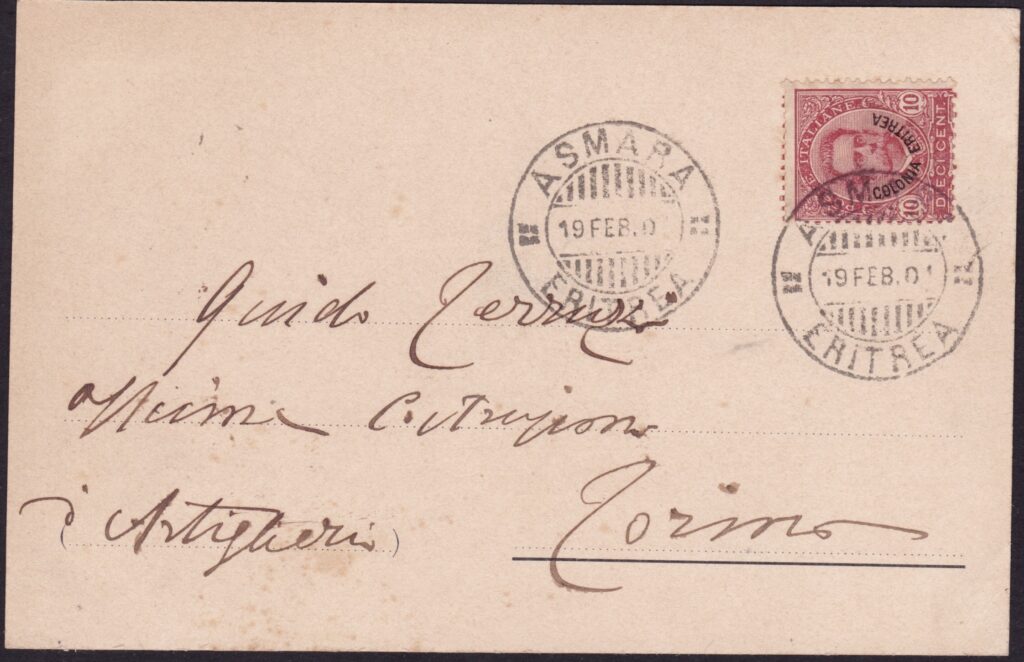 ASMARA
19 FEB. 0
ERITREA
10
ITALIANE
COLONIA ERITREA
DECI CENT.
10
ASM
19 FEB. 01
ERITREA
Guido
Officina Costruzioni
d'Artiglieria
Torino